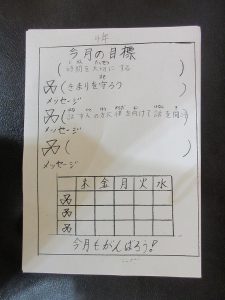 4年
今月の目標
(時間を大切にする)
(きまりを守ろう)
メッセージ
方に体を向けて話を聞こう
メッセージ
( )
メッセージ
木 金 月 火 水
今月もがんばろう!